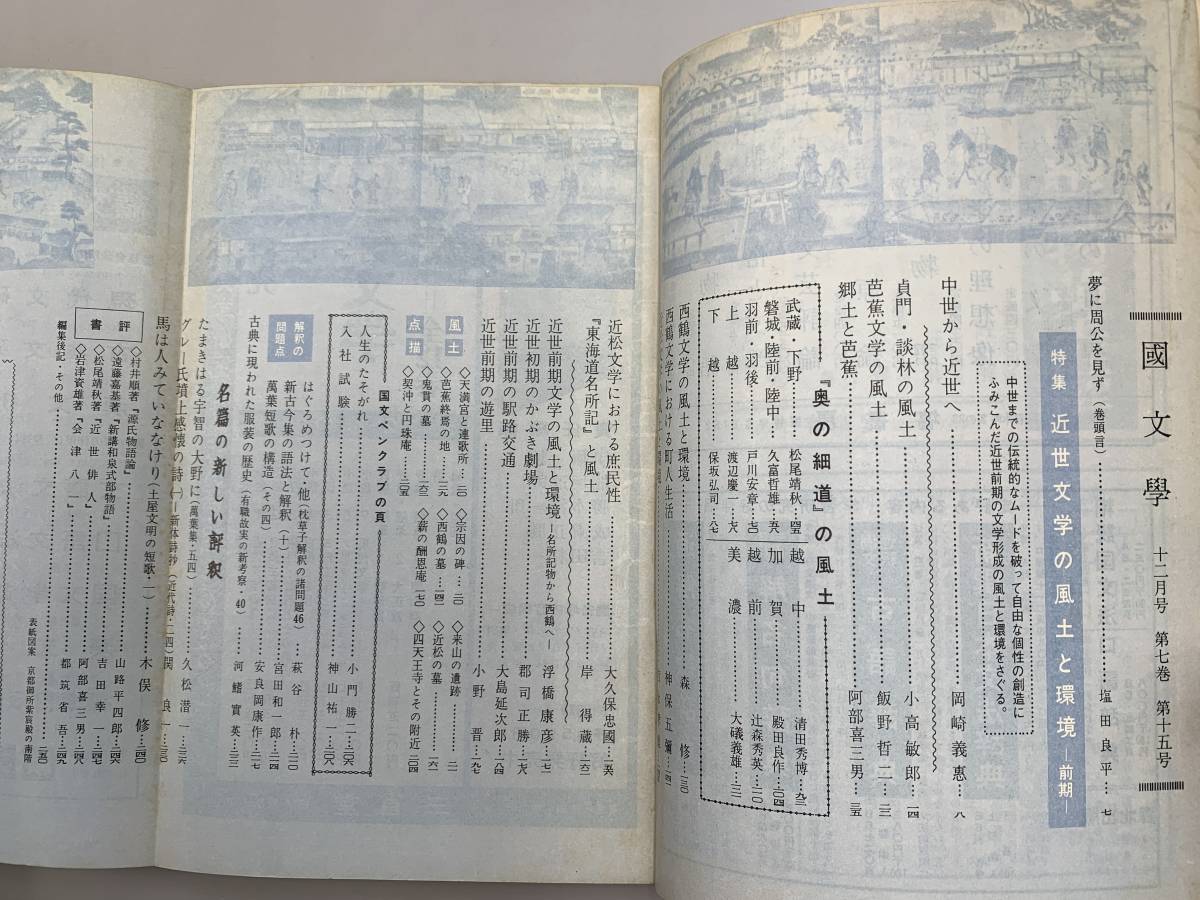 國文學
十二月号 第七巻 第十五号
夢に周公を見ず(巻頭言)……塩田良平…七
特集 近世文学の風土と環境 ―前期―
中世までの伝統的なムードを破って自由な個性の創造に
ふみこんだ近世前期の文学形成の風土と環境をさぐる。
中世から近世へ……岡崎義惠…八
貞門・談林の風土……小高敏郎…一四
芭蕉文学の風土……飯野哲二…二三
郷土と芭蕉……阿部喜三男…三五
『奥の細道』の風土
武蔵・下野……松尾靖秋…四五
磐城・陸前・陸中……久富哲雄…五八
羽前・羽後……戸川安章…六六
上越……渡辺慶一…七八
下越……保坂弘司…八七
越中……清田秀博…九三
加賀……殿田良作…一〇四
越前……辻森秀英…一一〇
美濃……大磯義雄…一一三
西鶴文学の風土と環境……森修…一三〇
西鶴文学における町人生活……神保五彌
近松文学における庶民性……大久保忠國…一五五
『東海道名所記』と風土……岸得蔵…一六一
近世前期文学の風土と環境―名所記物から西鶴へ―……浮橋康彦…一七二
近世初期のかぶき劇場……郡司正勝…一七九
近世前期の駅路交通……大島延次郎…一八四
近世前期の遊里……小野晋…一九七
風土点描
◇天満宮と連歌所…二〇
◇宗因の碑…三〇
◇来山の遺跡…二一
◇芭蕉終焉の地…三九
◇西鶴の墓…一四四
◇近松の墓…一六〇
◇鬼貫の墓…一六三
◇薪の酬恩庵…一七〇
◇四天王寺とその附近…二〇四
◇契沖と円珠庵…二〇五
国文ペンクラブの頁
人生のたそがれ……小門勝二…二〇六
入社試験……神山祐一…二〇八
解釈の問題点
はぐろめつけて・他(枕草子解釈の諸問題46)……萩谷朴…二一〇
新古今集の語法と解釈(十)……宮田和一郎…二二四
萬葉短歌の構造(その四)……安良岡康作…二一七
古典に現われた服装の歴史(有職故実の新考察・40)……河鰭實英…二三二
名篇の新しい評釈
たまきはる宇智の大野に(萬葉集・五四)……久松潜一…二三六
グレー氏墳上感懐の詩(一)―新体詩抄(近代詩・二四)……関良一
馬は人みていななけり(土屋文明の短歌・一)……木俣修…二四〇
書評
◇村井順著『源氏物語論』……山路平四郎…二四六
◇遠藤嘉基著『新講和泉式部物語』……吉田幸一…二四六
◇松尾靖秋著『近世俳人』……阿部喜三男…二四八
◇岩津資雄著『会津八一』……都筑省吾…二四九
編集後記・その他……二五〇
表紙図案 京都御所紫宸殿の南階